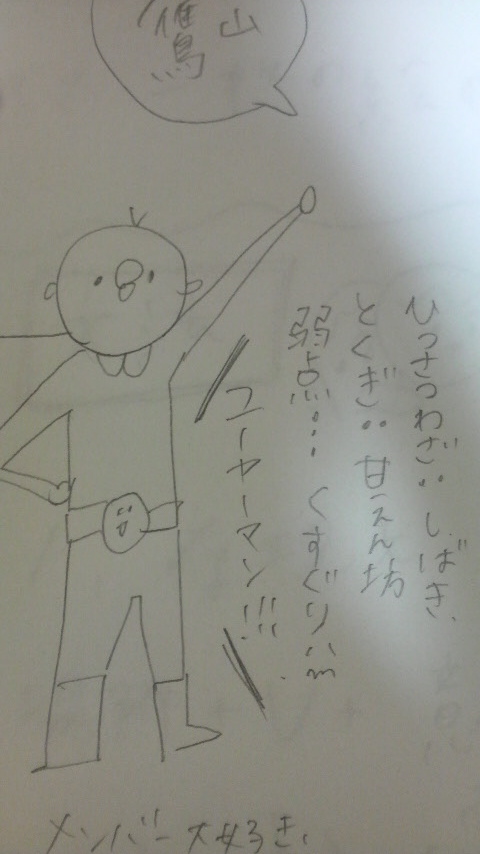 鷹山
ひっさつわざ‥しばき、
とくぎ‥甘えん坊
弱点…くすぐり
ユーヤーマン!!!
メンバー大好き、